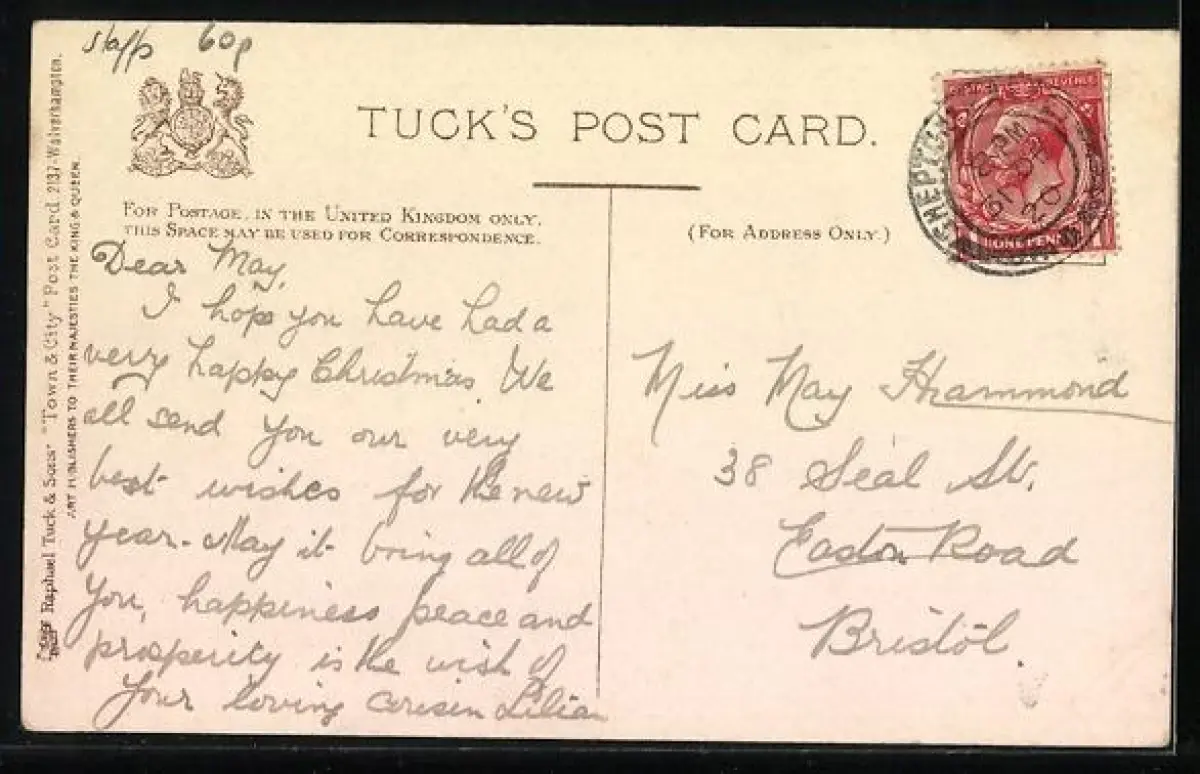 Staffs 60p
TUCK'S POST CARD.
FOR POSTAGE, IN THE UNITED KINGDOM ONLY,
THIS SPACE MAY BE USED FOR CORRESPONDENCE.
(FOR ADDRESS ONLY.)
Dear May,
I hope you have had a
very happy Christmas. We
all send you our very
best wishes for the new
year. May it bring all of
you, happiness peace and
prosperity is the wish of
your loving cousin Lilian
Miss May Hammond
38 Seal St.
Easton Road
Bristol.
Raphael Tuck & Sons' "Town & City" Post Card 2137 - Wolverhampton.
ART PUBLISHERS TO THEIR MAJESTIES THE KING & QUEEN.
REVENUE
ONE PENNY
8 PM
20